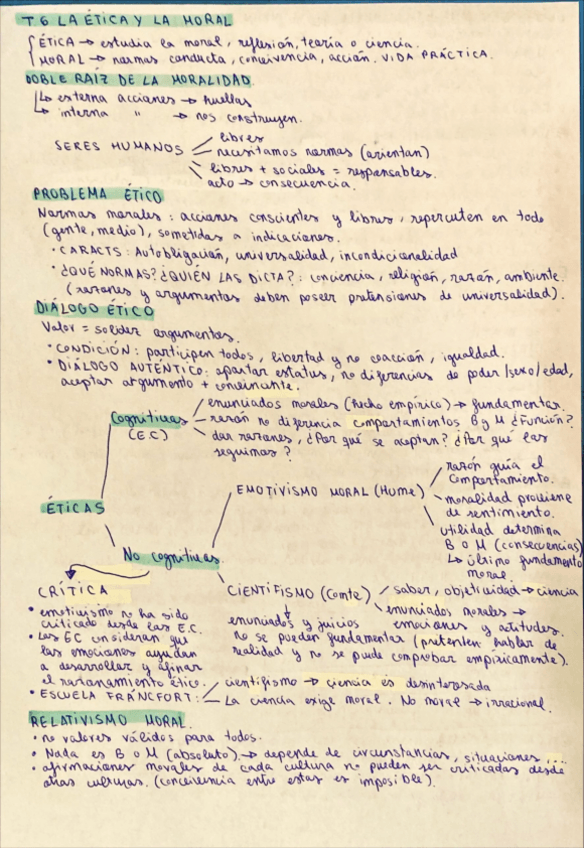 T6 LA ÉTICA Y LA MORAL
ÉTICA → estudia la moral, reflexión, teoría o ciencia.
MORAL → normas conducta, convivencia, acción. VIDA PRÁCTICA.
DOBLE RAÍZ DE LA MORALIDAD.
↳ externa acciones → huellas
↳ interna " → nos construyen.
SERES HUMANOS
libres
necesitamos normas (orientan)
libres + sociales = responsables.
acto → consecuencia.
PROBLEMA ÉTICO
Normas morales: acciones conscientes y libres, repercuten en todo
(gente, medio), sometidas a indicaciones.
· CARACTS: Autobligación, universalidad, incondicionalidad
· ¿QUÉ NORMAS? ¿QUIÉN LAS DICTA?: conciencia, religión, razón, ambiente.
(razones y argumentos deben poseer pretensiones de universalidad).
DIÁLOGO ÉTICO
Valor = solidez argumentos.
· CONDICIÓN: participen todos, libertad y no coacción, igualdad.
· DIÁLOGO AUTÉNTICO: apartar estatus, no diferencias de poder/sexo/edad,
aceptar argumento + convincente.
Cognitivas
(E.C)
enunciados morales (hecho empírico) → fundamentar.
razón no diferencia comportamientos B y M ¿Función?
dar razones, ¿Por qué se aceptan? ¿Por qué las
seguimos?
ÉTICAS
EMOTIVISMO MORAL (Hume)
razón guía el
comportamiento.
moralidad proviene
de sentimiento.
utilidad determina
B o M (consecuencias)
↳ último fundamento
moral.
No cognitivas
CRÍTICA
· emotivismo no ha sido
criticado desde las E.C.
· Las EC consideran que
las emociones ayudan
a desarrollar y afinar
el razonamiento ético.
CIENTIFISMO (Comte)
saber, objetividad → ciencia
enunciados morales →
emociones y actitudes.
enunciados y juicios
no se pueden fundamentar (pretenten hablar de
realidad y no se puede comprobar empíricamente).
· ESCUELA FRÁNCFORT:
cientifismo → ciencia es desinteresada
La ciencia exige moral. No moral → irracional.
RELATIVISMO MORAL.
· no valores válidos para todos.
· Nada es B o M (absoluto). → depende de circunstancias, situaciones...
· afirmaciones morales de cada cultura no pueden ser criticadas desde
otras culturas. (convivencia entre estas es imposible).